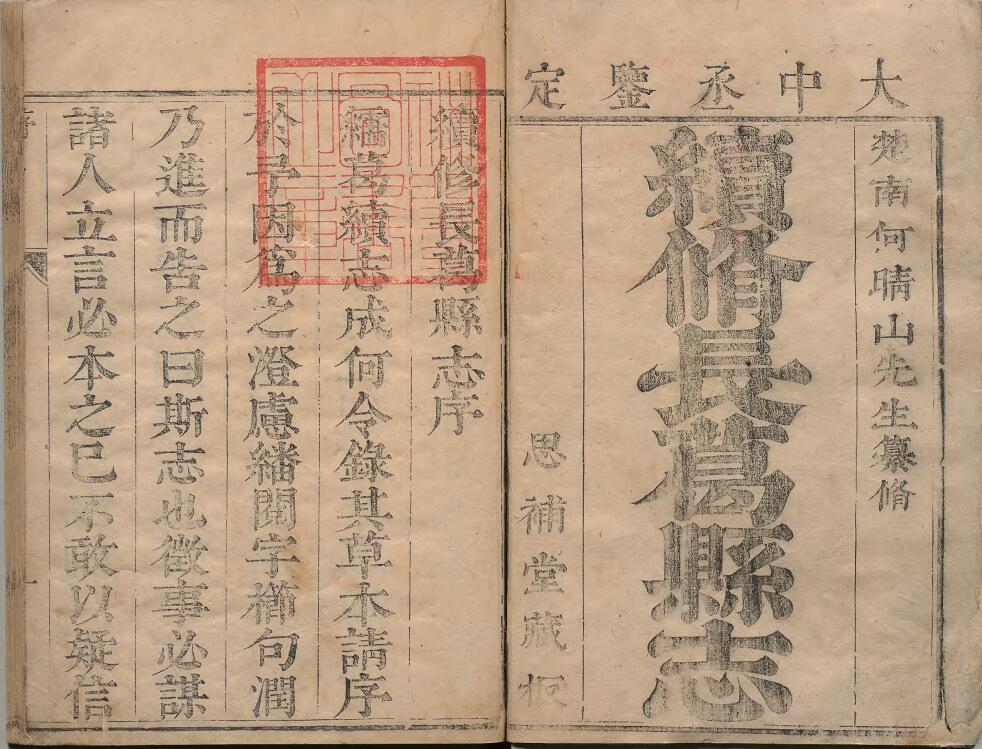 大中丞鑒定
楚南何晴山先生纂脩
續脩長葛縣志
思補堂藏板
續修長葛縣志序
葛續志成何令錄其草本請序
於予因為之澄慮繙閱字櫛句潤
乃進而告之曰斯志也徵事必謀
諸人立言必本之已不敢以疑信